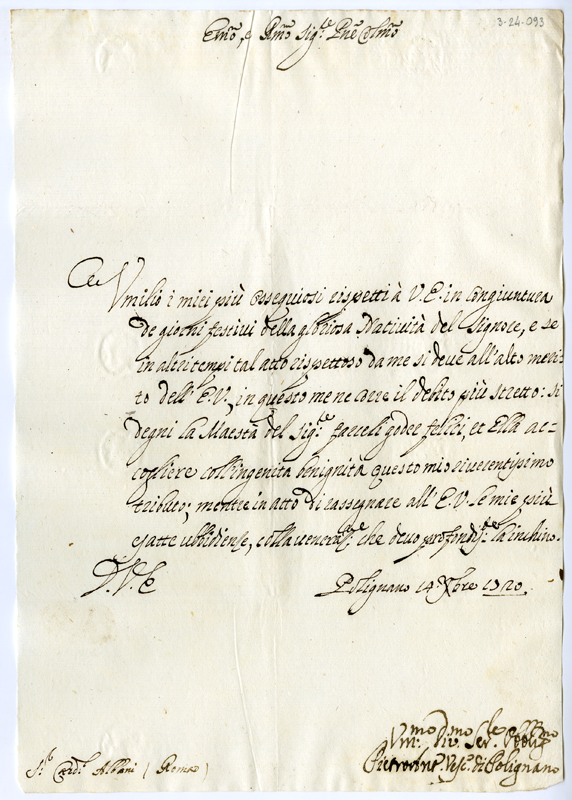 3-24-093
Em̃o, e Rm̃o Sig.re Pñe Colm̃o
Vmilio i miei più ossequiosi rispetti à V. E. in congiuntura
de giorni festivi della gloriosa Natività del Signore, e se
in altri tempi tal atto rispettoso da me si deve all'alto meri-
to dell'E.V., in questo me ne corre il debito più stretto: si
degni la Maestà del Sig.re farceli goder felici, et Ella ac-
cogliere coll'ingenita benignità questo mio riverentissimo
tributo; mentre in atto di rassegnare all'E.V. le mie più
esatte ubbidienze, colla veneraz.ne che devo profondis.te la inchino.
D.V.E.
Polignano 14 Xbre 1720.
Vm̃o Div.mo Ser.re
Pietro Vesc.o di Polignano
S.r Card. Albani (Roma)